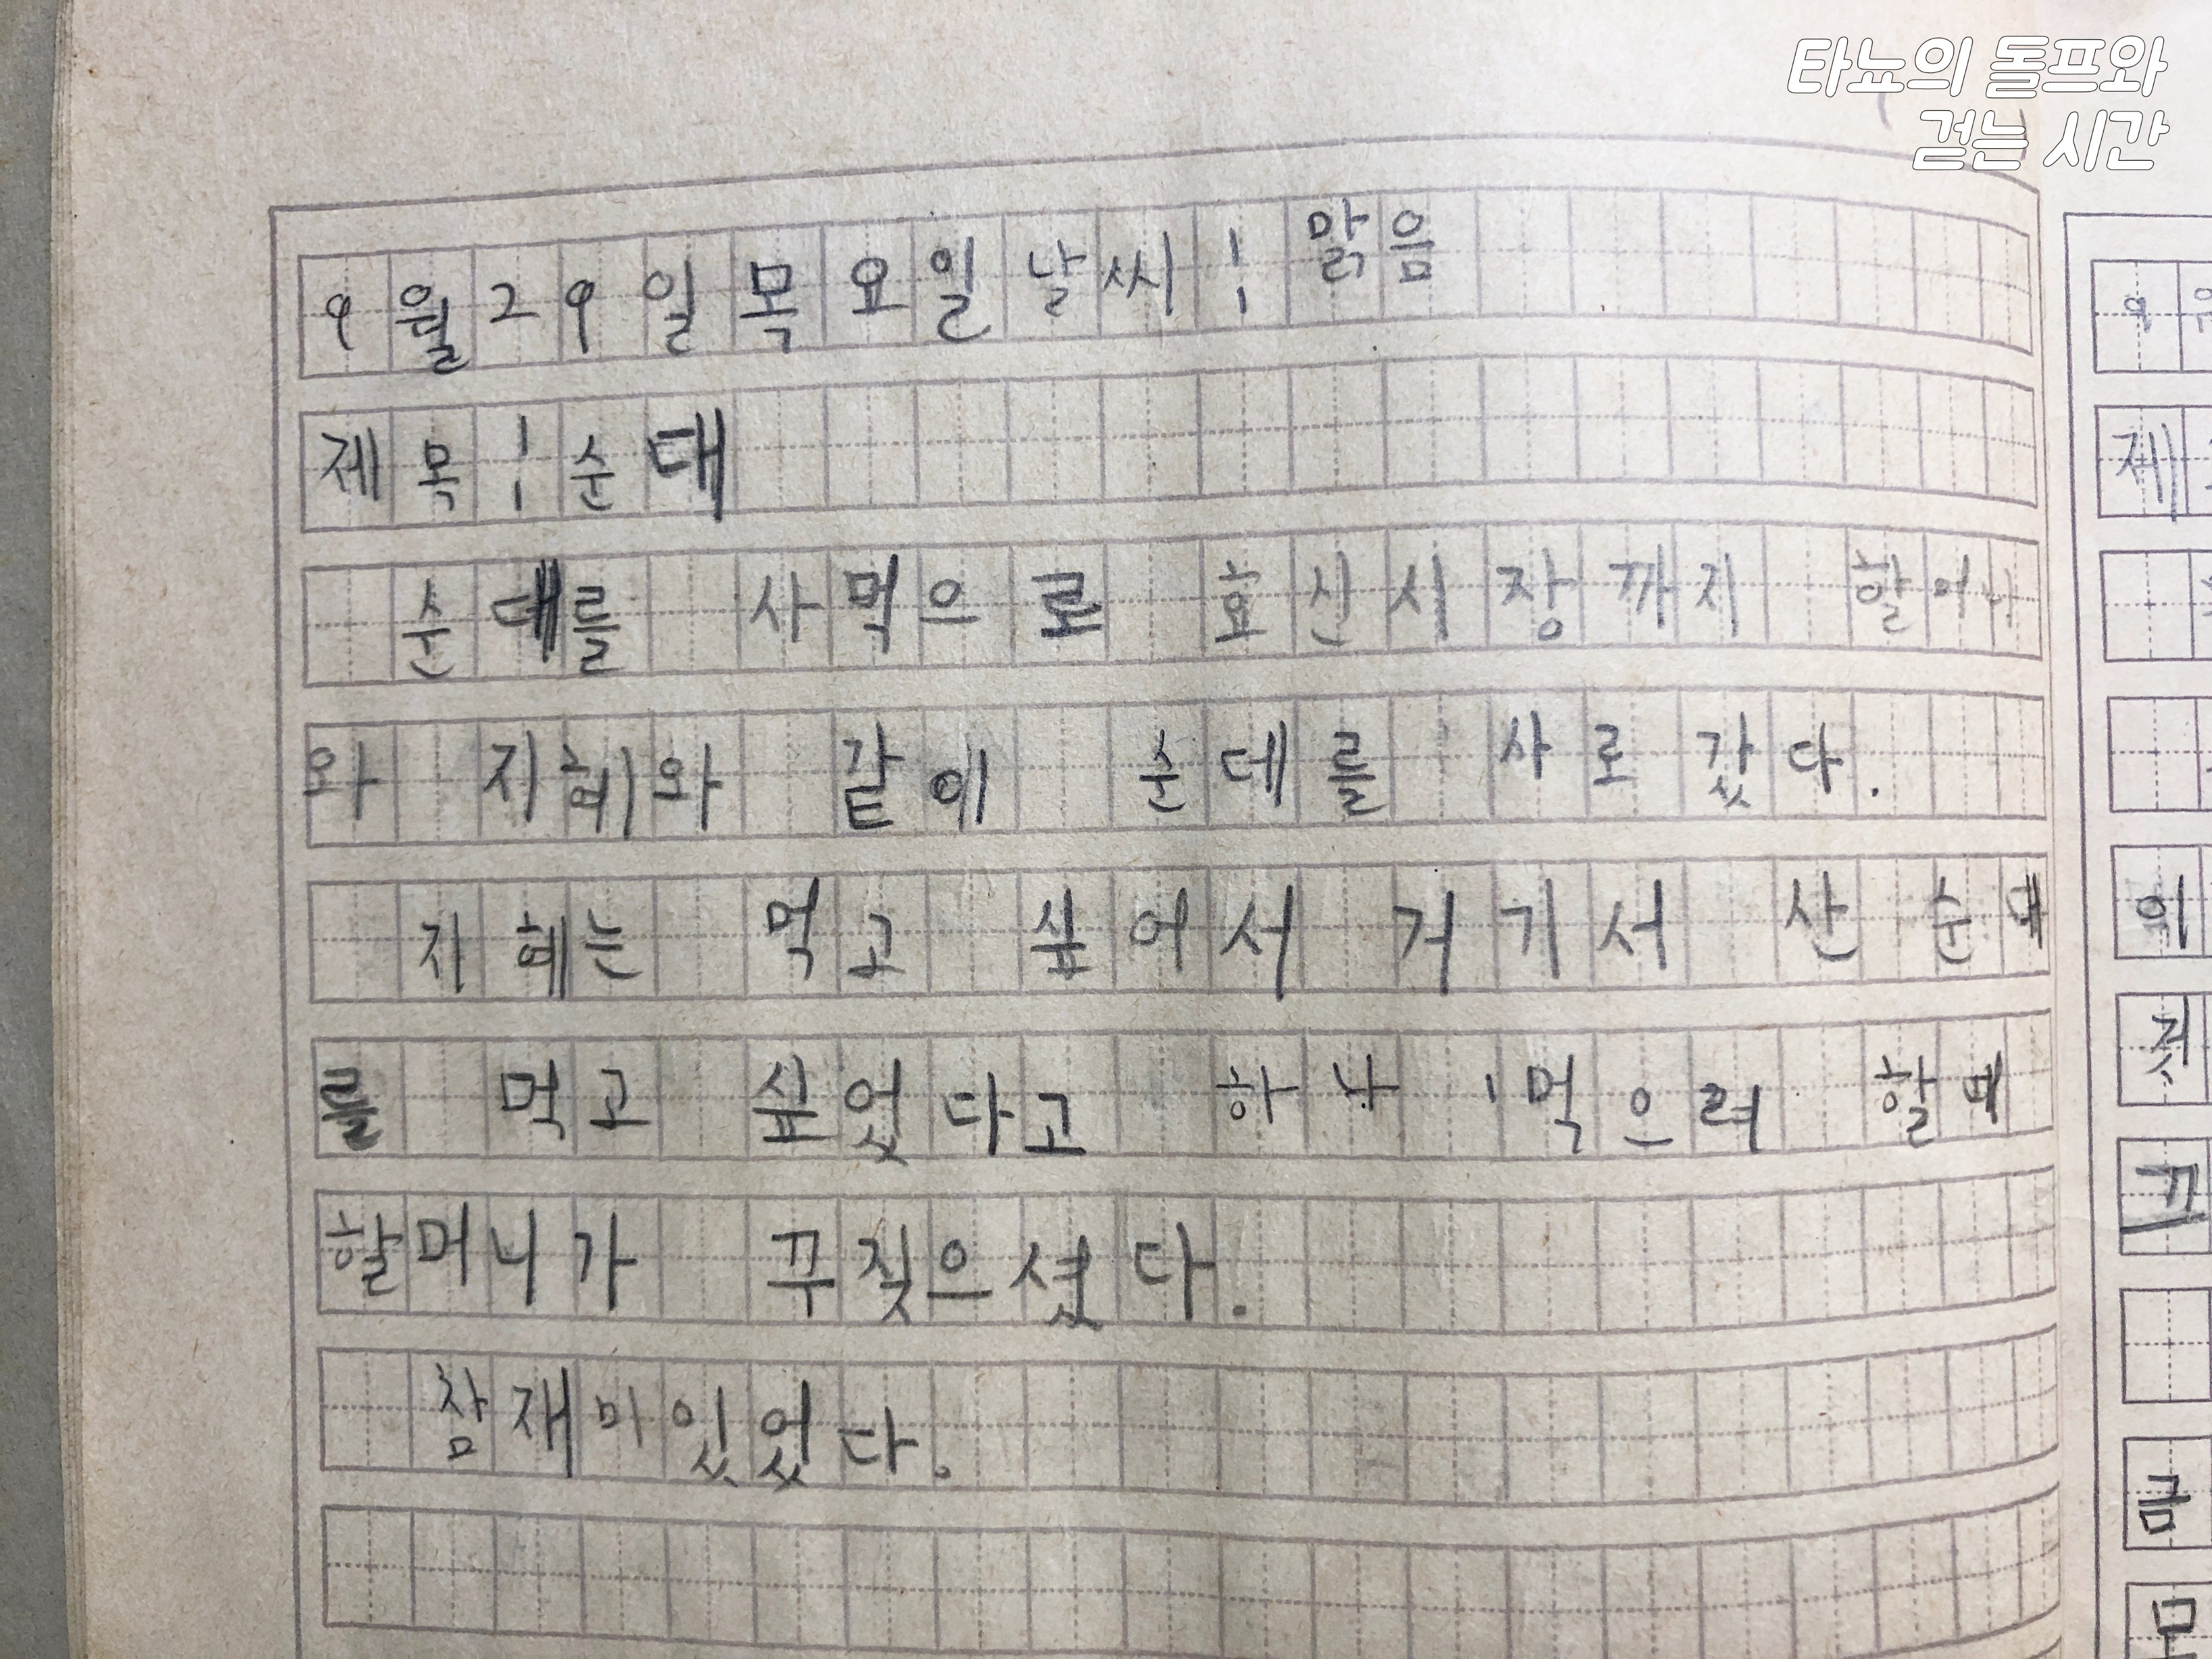 타뇨의 돌프와
걷는 시간
9월29일목요일날씨! 맑음
제목!순대
순대를 사먹으로 효신시장까지 할머니
와 지혜와 같이 순데를 사로갔다.
지혜는 먹고 싶어서 거기서 산 순대
를 먹고 싶었다고 하나 먹으려 할때
할머니가 꾸짖으셨다.
참재미있었다.